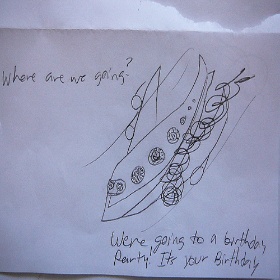 Where are we going?
We're going to a birthday
Party! It's your Birthday